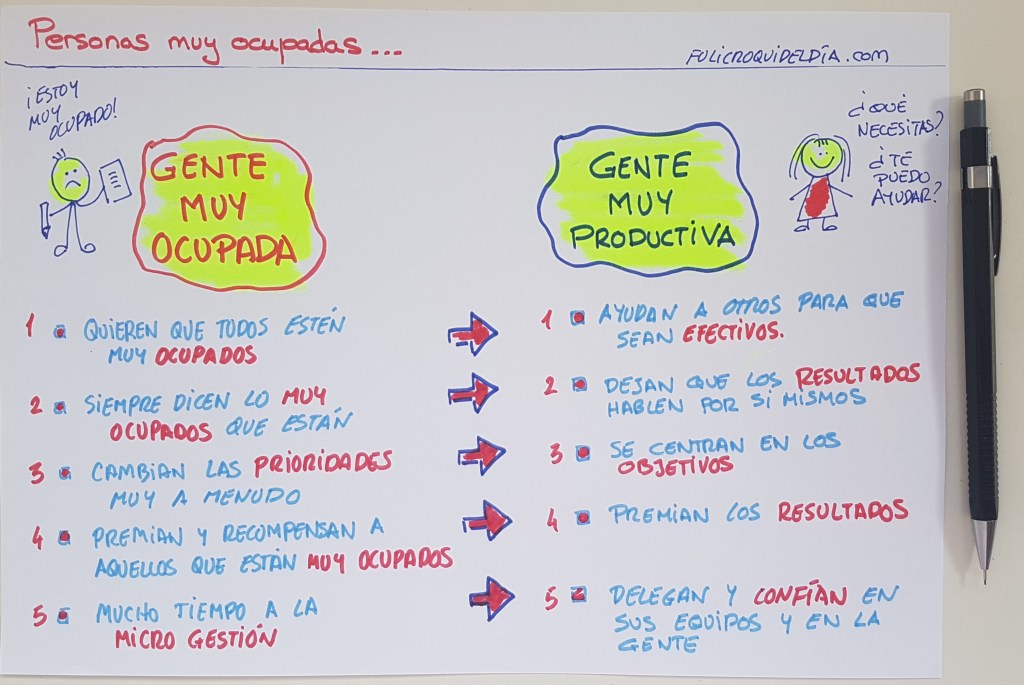 Personas muy ocupadas...
FULICROQUIDELDÍA.com
¡ESTOY
MUY
OCUPADO!
GENTE
MUY
OCUPADA
GENTE
MUY
PRODUCTIVA
¿QUÉ
NECESITAS?
¿TE
PUEDO
AYUDAR?
1 QUIEREN QUE TODOS ESTÉN
MUY OCUPADOS
1 AYUDAN A OTROS PARA QUE
SEAN EFECTIVOS.
2 SIEMPRE DICEN LO MUY
OCUPADOS QUE ESTÁN
2 DEJAN QUE LOS RESULTADOS
HABLEN POR SÍ MISMOS
3 CAMBIAN LAS PRIORIDADES
MUY A MENUDO
3 SE CENTRAN EN LOS
OBJETIVOS
4 PREMIAN Y RECOMPENSAN A
AQUELLOS QUE ESTÁN MUY OCUPADOS
4 PREMIAN LOS RESULTADOS
5 MUCHO TIEMPO A LA
MICRO GESTIÓN
5 DELEGAN Y CONFÍAN EN
SUS EQUIPOS Y EN LA
GENTE